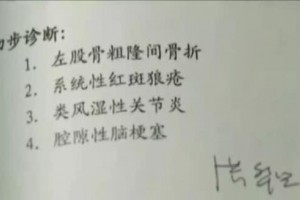 初步诊断:
1. 左股骨粗隆间骨折
2. 系统性红斑狼疮
3. 类风湿性关节炎
4. 腔隙性脑梗塞